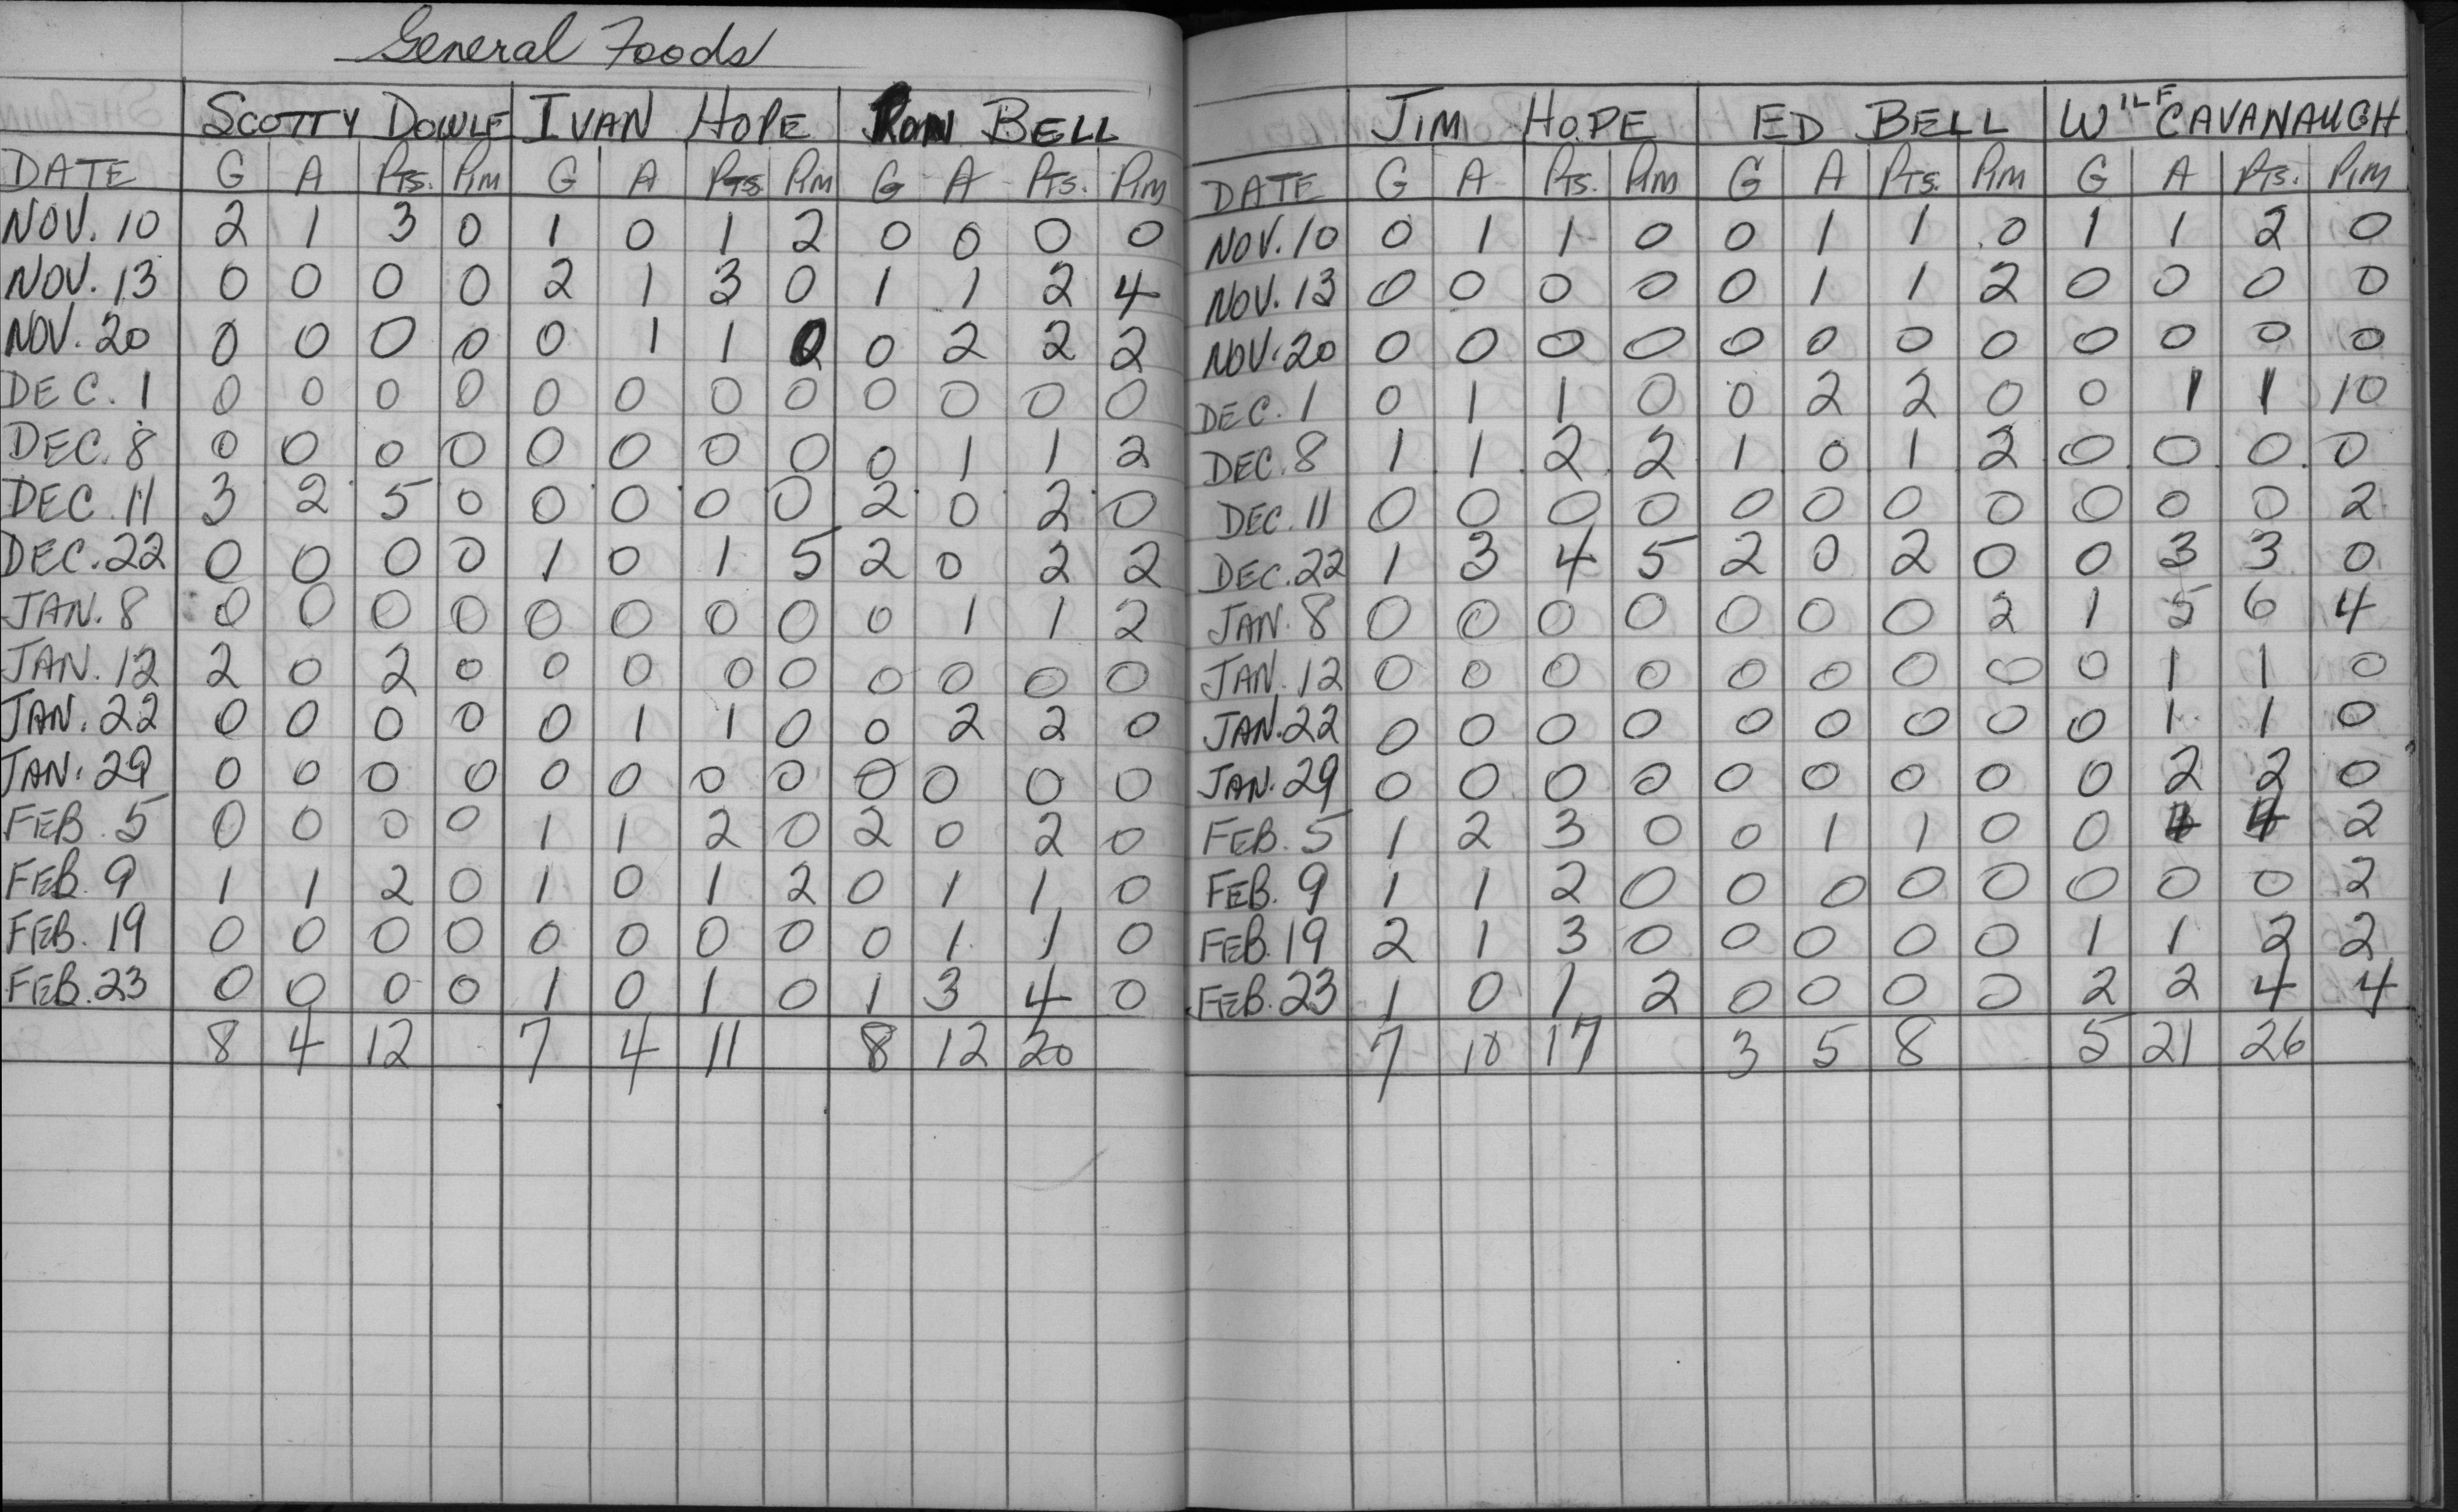 General Foods
SCOTTY DOWLE IVAN HOPE RON BELL
DATE G A PTS. PIM G A PTS. PIM G A PTS. PIM
NOV. 10 2 1 3 0 1 0 1 2 0 0 0 0
NOV. 13 0 0 0 0 2 1 3 0 1 1 2 4
NOV. 20 0 0 0 0 0 1 1 0 2 2 2
DEC. 1 0 0 0 0 0 0 0 0 0 0 0 0
DEC. 8 0 0 0 0 0 0 0 0 0 1 1 2
DEC. 11 3 2 5 0 0 0 0 0 2 0 2 0
DEC. 22 0 0 0 0 1 0 1 5 2 0 2 2
JAN. 8 0 0 0 0 0 0 0 0 0 1 1 2
JAN. 12 2 0 2 0 0 0 0 0 0 0 0 0
JAN. 22 0 0 0 0 0 1 1 0 0 2 2 0
JAN. 29 0 0 0 0 0 0 0 0 0 0 0 0
FEB. 5 0 0 0 0 1 1 2 0 2 0 2 0
FEB. 9 1 1 2 0 1 0 1 2 0 1 1 0
FEB. 19 0 0 0 0 0 0 0 0 0 1 1 0
FEB. 23 0 0 0 0 1 0 1 0 1 3 4 0
8 4 12 7 4 11 8 12 20
JIM HOPE ED BELL WILF CAVANAUGH
DATE G A PTS. PIM G A PTS. PIM G A PTS. PIM
NOV. 10 0 1 1 0 0 1 1 0 1 1 2 0
NOV. 13 0 0 0 0 0 1 1 2 0 0 0 0
NOV. 20 0 0 0 0 0 0 0 0 0 0 0 0
DEC. 1 0 1 1 0 0 2 2 0 0 1 1 10
DEC. 8 1 1 2 2 1 0 1 2 0 0 0 0
DEC. 11 0 0 0 0 0 0 0 0 0 0 0 2
DEC. 22 1 3 4 5 2 0 2 0 0 3 3 0
JAN. 8 0 0 0 0 0 0 0 2 1 5 6 4
JAN. 12 0 0 0 0 0 0 0 0 0 1 1 0
JAN. 22 0 0 0 0 0 0 0 0 0 1 1 0
JAN. 29 0 0 0 0 0 0 0 0 0 2 2 0
FEB. 5 1 2 3 0 0 1 1 0 0 4 4 2
FEB. 9 1 1 2 0 0 0 0 0 0 0 0 2
FEB. 19 2 1 3 0 0 0 0 0 1 1 2 2
FEB. 23 1 0 1 2 0 0 0 0 2 2 4 4
7 10 17 3 5 8 5 21 26